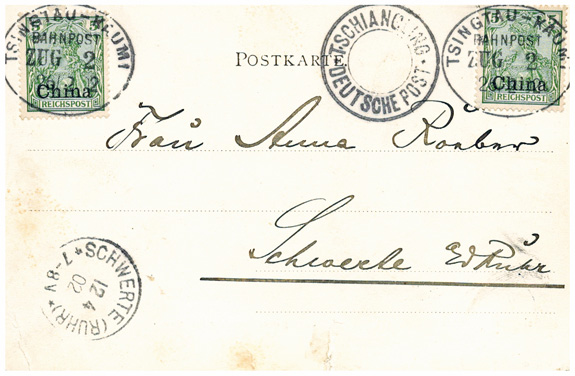 TSINGTAU-KAUMI
BAHNPOST
ZUG 2
26 2
China
REICHSPOST
POSTKARTE
TSCHIANGLING
*DEUTSCHE POST*
TSINGTAU-KAUMI
BAHNPOST
ZUG 2
China
REICHSPOST
Frau Anna Röeber
Schwerte
Ruhr
*SCHWERTE (RUHR)*
12 4
02
7-8V